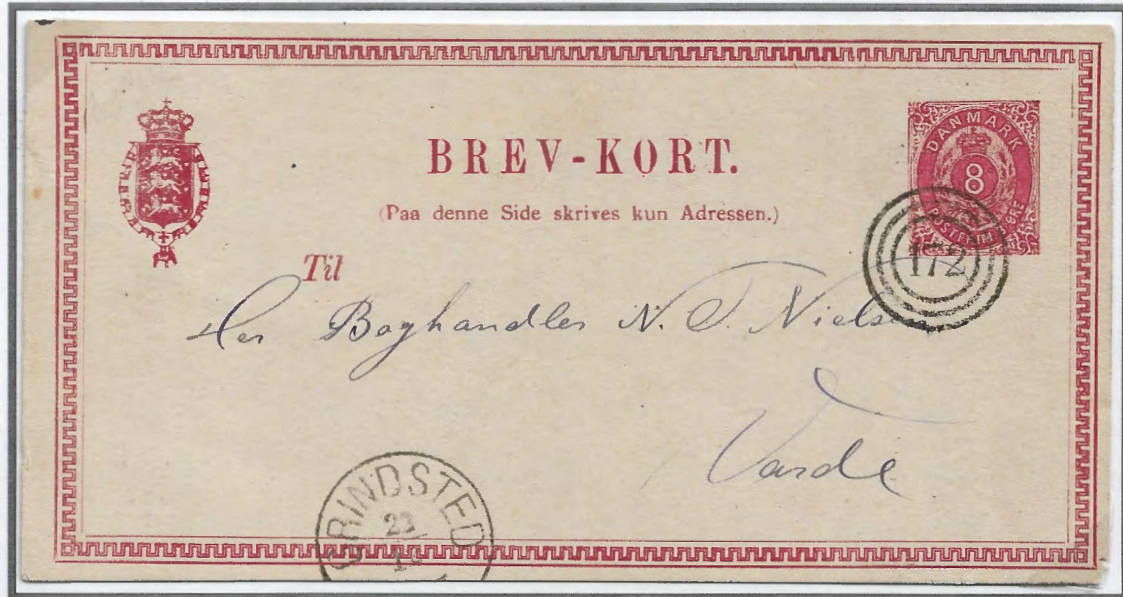 BREV-KORT.
(Paa denne Side skrives kun Adressen.)
DANMARK
8
172
Til
Her Boghandler N. J. Nielsen
Varde
GRINDSTED